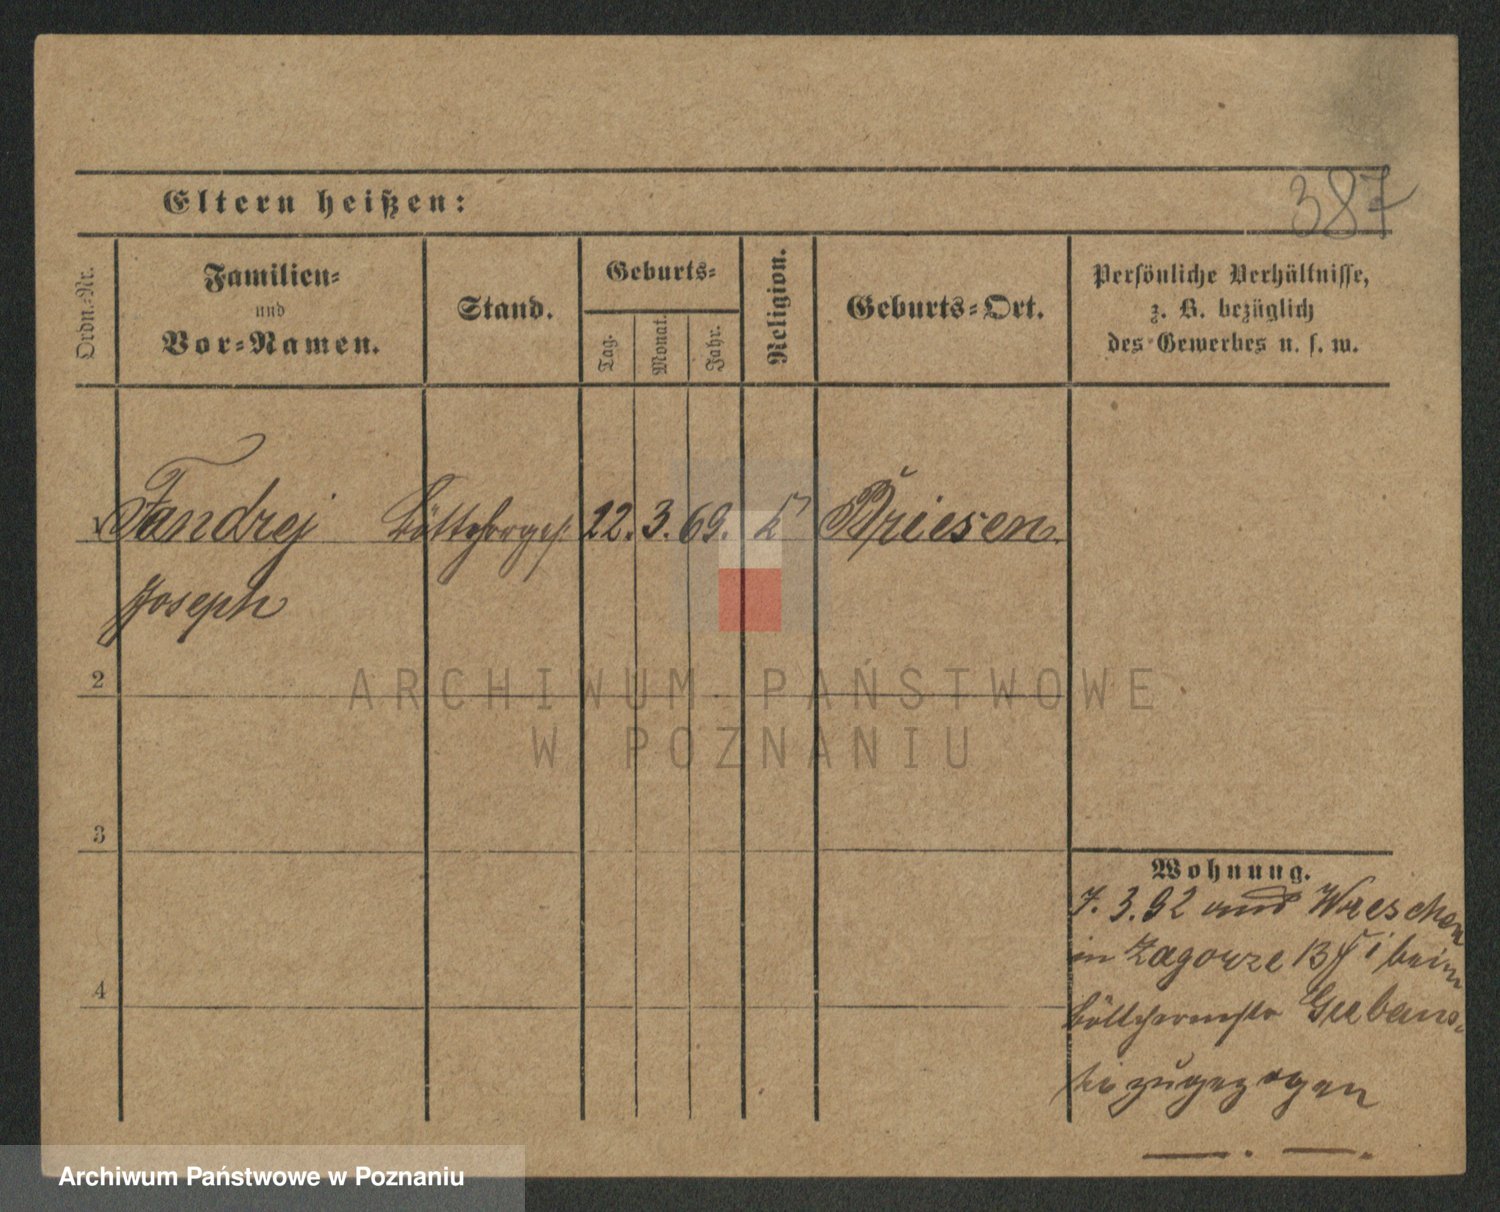 387
Eltern heißen:
Ordn.-Nr.
Familien-
und
Vor-Namen.
Stand.
Geburts-
Tag.
Monat.
Jahr.
Religion.
Geburts-Ort.
Persönliche Verhältnisse,
z. B. bezüglich
des Gewerbes u. s. w.
1 Fandrej Böttcherges. 22. 3. 69. k Briesen.
Joseph
2
ARCHIWUM PAŃSTWOWE
W POZNANIU
3
4
Wohnung.
7. 3. 92 aus Wreschen
in Zagorze 13 bei beim
Böttchermstr Gurbans-
ki zugezogen
Archiwum Państwowe w Poznaniu